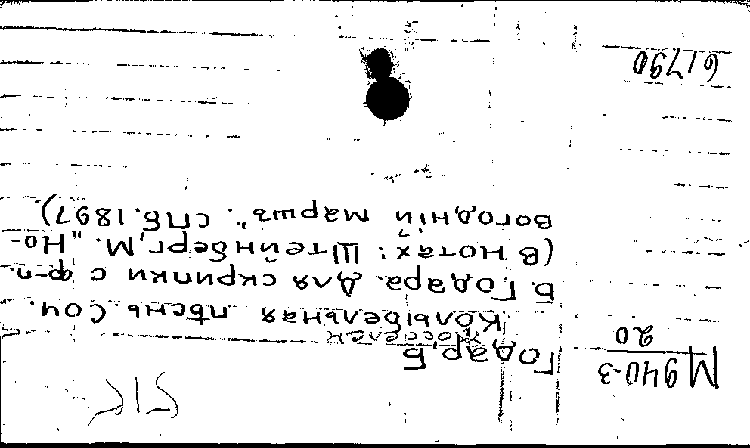 М940-3
20
Годар Б
Жосселен
Колыбельная пѣснь. Соч.
Б. Годара. Для скрипки с ф-п.
(В нотах: Штейнберг, М. "Но-
вогодній маршъ". СПб. 1897)
61790